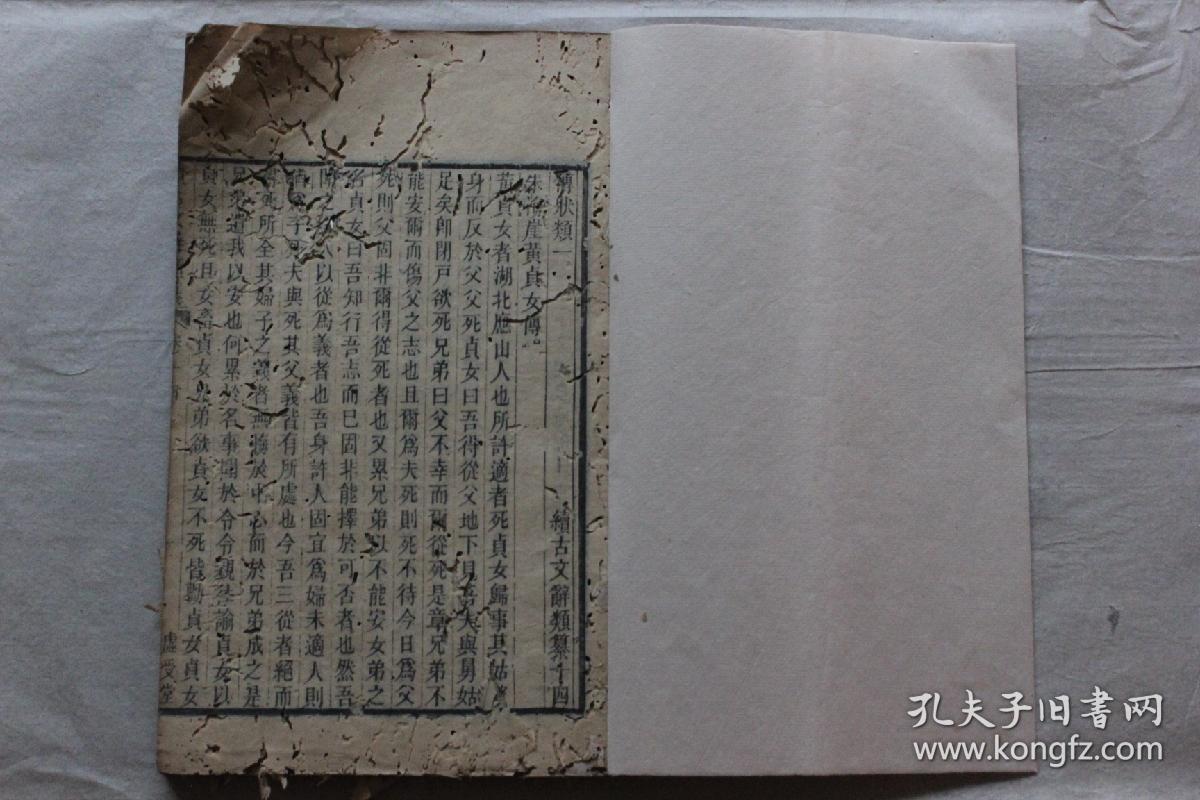 傳狀類一 續古文辭類纂十四
朱梅崖黃貞女傳
黃貞女者湖北應山人也所許適者死貞女歸事其姑
身而反於父父死貞女曰吾得從父地下見吾夫與舅姑
足矣即閉戶欲死兄弟曰父不幸而爾從死是章兄弟不
能安爾而傷父之志也且爾爲夫死則死不待今日爲父
死則父固非爾得從死者也又累兄弟以不能安女弟之
名貞女曰吾知行吾志而已固非能擇於可否者也然吾
聞之 人以從爲義者也吾身許人固宜爲婦未適人則
猶爲子 夫與死其父義皆有所處也今吾三從者絕而
死所全其婦子之義者無 於中心而於兄弟成之是
遺我以安也何累於名事聞於令令親 諭貞女以
貞女無死且女 貞女兄弟欲貞女不死皆勸貞女貞女
虛受堂
孔夫子旧書网
www.kongfz.com